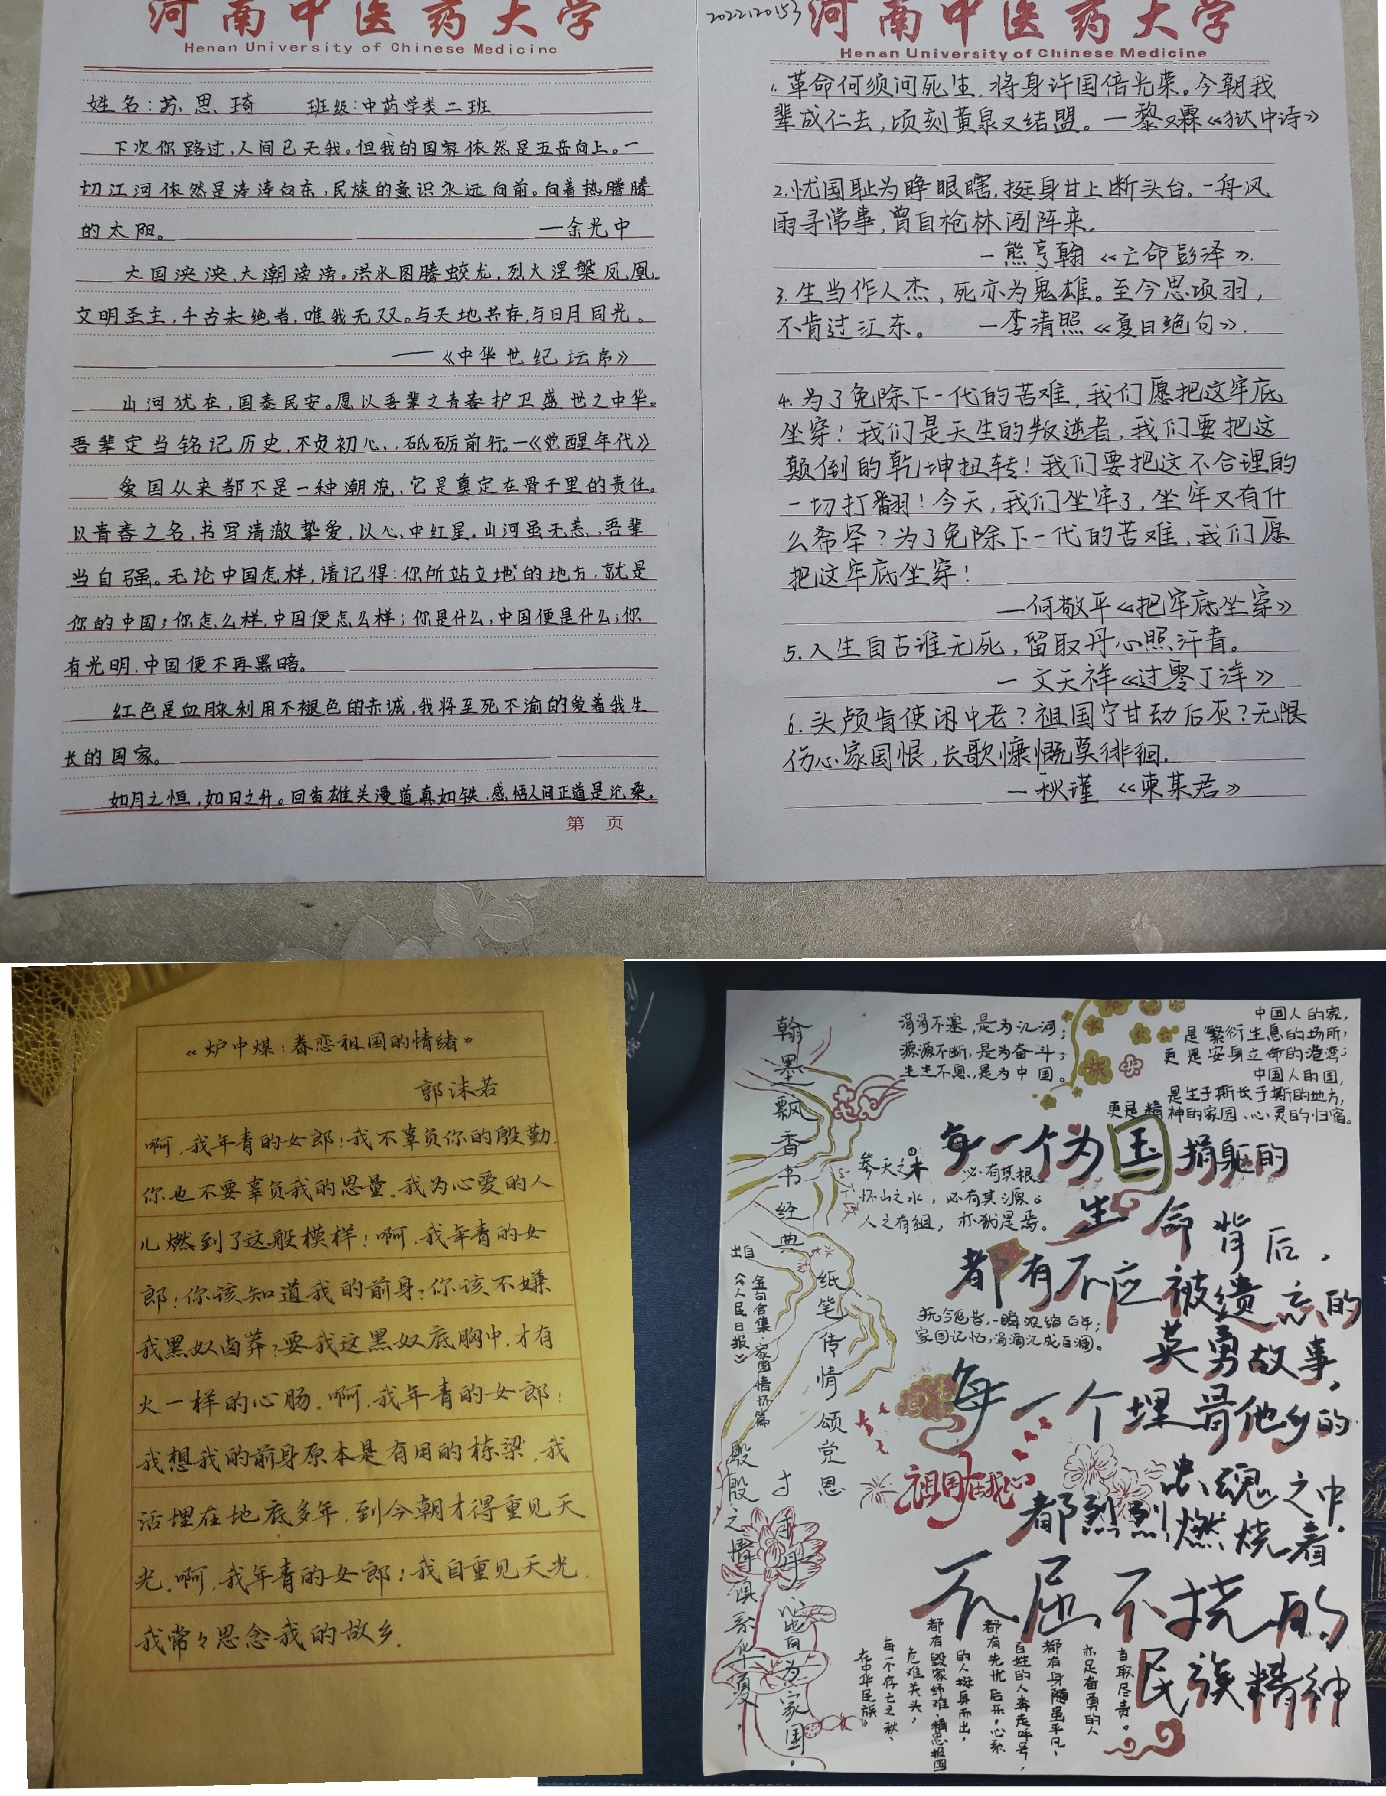 河南中医药大学
Henan University of Chinese Medicine
姓名:苏思琦 班级:中药学类二班
下次你路过,人间已无我。但我的国家依然是五岳向上。一
切江河依然是滚滚向东,民族的意识永远向前。向着热腾腾
的太阳。 —余光中
大国泱泱,大潮滂滂。洪水图腾蛟龙,烈火涅槃凤凰。
文明圣主,千古未绝者,唯我无双。与天地共存,与日月同光。
——《中华世纪坛序》
山河犹在,国泰民安。愿以吾辈之青春护卫盛世之中华。
吾辈定当铭记历史,不负初心,砥砺前行。—《觉醒年代》
爱国从来都不是一种潮流,它是奠定在骨子里的责任。
以青春之名,书写清澈挚爱,以心中红星。山河虽无恙,吾辈
当自强。无论中国怎样,请记得:你所站立地的地方,就是
你的中国;你怎么样,中国便怎么样;你是什么,中国便是什么;你
有光明,中国便不再黑暗。
红色是血脉,利用不褪色的赤诚,我将至死不渝的爱着我生
长的国家。
如月之恒,如日之升。回首雄关漫道真如铁,感悟人间正道是沧桑。
第 页
河南中医药大学
Henan University of Chinese Medicine
1.革命何须问死生,将身许国倍光荣。今朝我
辈成仁去,顷刻黄泉又结盟。—黎又霖《狱中诗》
2.忧国耻为睁眼瞎,挺身甘上断头台。一舟风
雨寻常事,曾自枪林闯阵来。
—熊亨翰《亡命彭泽》.
3.生当作人杰,死亦为鬼雄。至今思项羽,
不肯过江东。 —李清照《夏日绝句》.
4.为了免除下一代的苦难,我们愿把这牢底
坐穿!我们是天生的叛逆者,我们要把这
颠倒的乾坤扭转!我们要把这不合理的
一切打翻!今天,我们坐牢了,坐牢又有什
么希罕?为了免除下一代的苦难,我们愿
把这牢底坐穿!
—何敬平《把牢底坐穿》
5.人生自古谁无死,留取丹心照汗青。
—文天祥《过零丁洋》
6.头颅肯使闲中老?祖国宁甘劫后灰?无限
伤心家国恨,长歌慷慨莫徘徊.
—秋瑾《柬某君》
《炉中煤:眷恋祖国的情绪》
郭沫若
啊,我年青的女郎!我不辜负你的殷勤,
你也不要辜负我的思量。我为心爱的人
儿燃到了这般模样!啊,我年青的女
郎!你该知道我的前身?你该不嫌
我黑奴卤莽?要我这黑奴底胸中,才有
火一样的心肠。啊,我年青的女郎!
我想我的前身原本是有用的栋梁,我
活埋在地底多年,到今朝才得重见天
光。啊,我年青的女郎!我自重见天光,
我常々思念我的故乡.
翰墨飘香书经典
纸笔传情颂党恩
出自
《人民日报》
金句合集·家国情怀篇
殷殷之情俱系华夏,
寸寸丹心皆为家国。
涓涓不塞,是为江河;
源源不断,是为奋斗;
生生不息,是为中国。
中国人的家,
是繁衍生息的场所,
更是安身立命的港湾;
中国人的国,
是生于斯长于斯的地方,
更是精神的家园、心灵的归宿。
参天之木,必有其根;
怀山之水,必有其源。
人之有祖,亦犹是焉。
每一个为国捐躯的
生命背后,
都有不应被遗忘的
英勇故事,
抚今追昔,一瞬浓缩百年;
家国记忆,涓滴汇成百溯。
每一个埋骨他乡的
忠魂之中,
祖国在我心
都烈烈燃烧着
不屈不挠的
民族精神
在中华民族
每一个存亡之秋、
危难关头,
都有毁家纾难、精忠报国
的人挺身而出,
都有先忧后乐,心系
百姓的人奔走呼号,
都有身随虽平凡,
亦足奋勇的人
自取尽责。